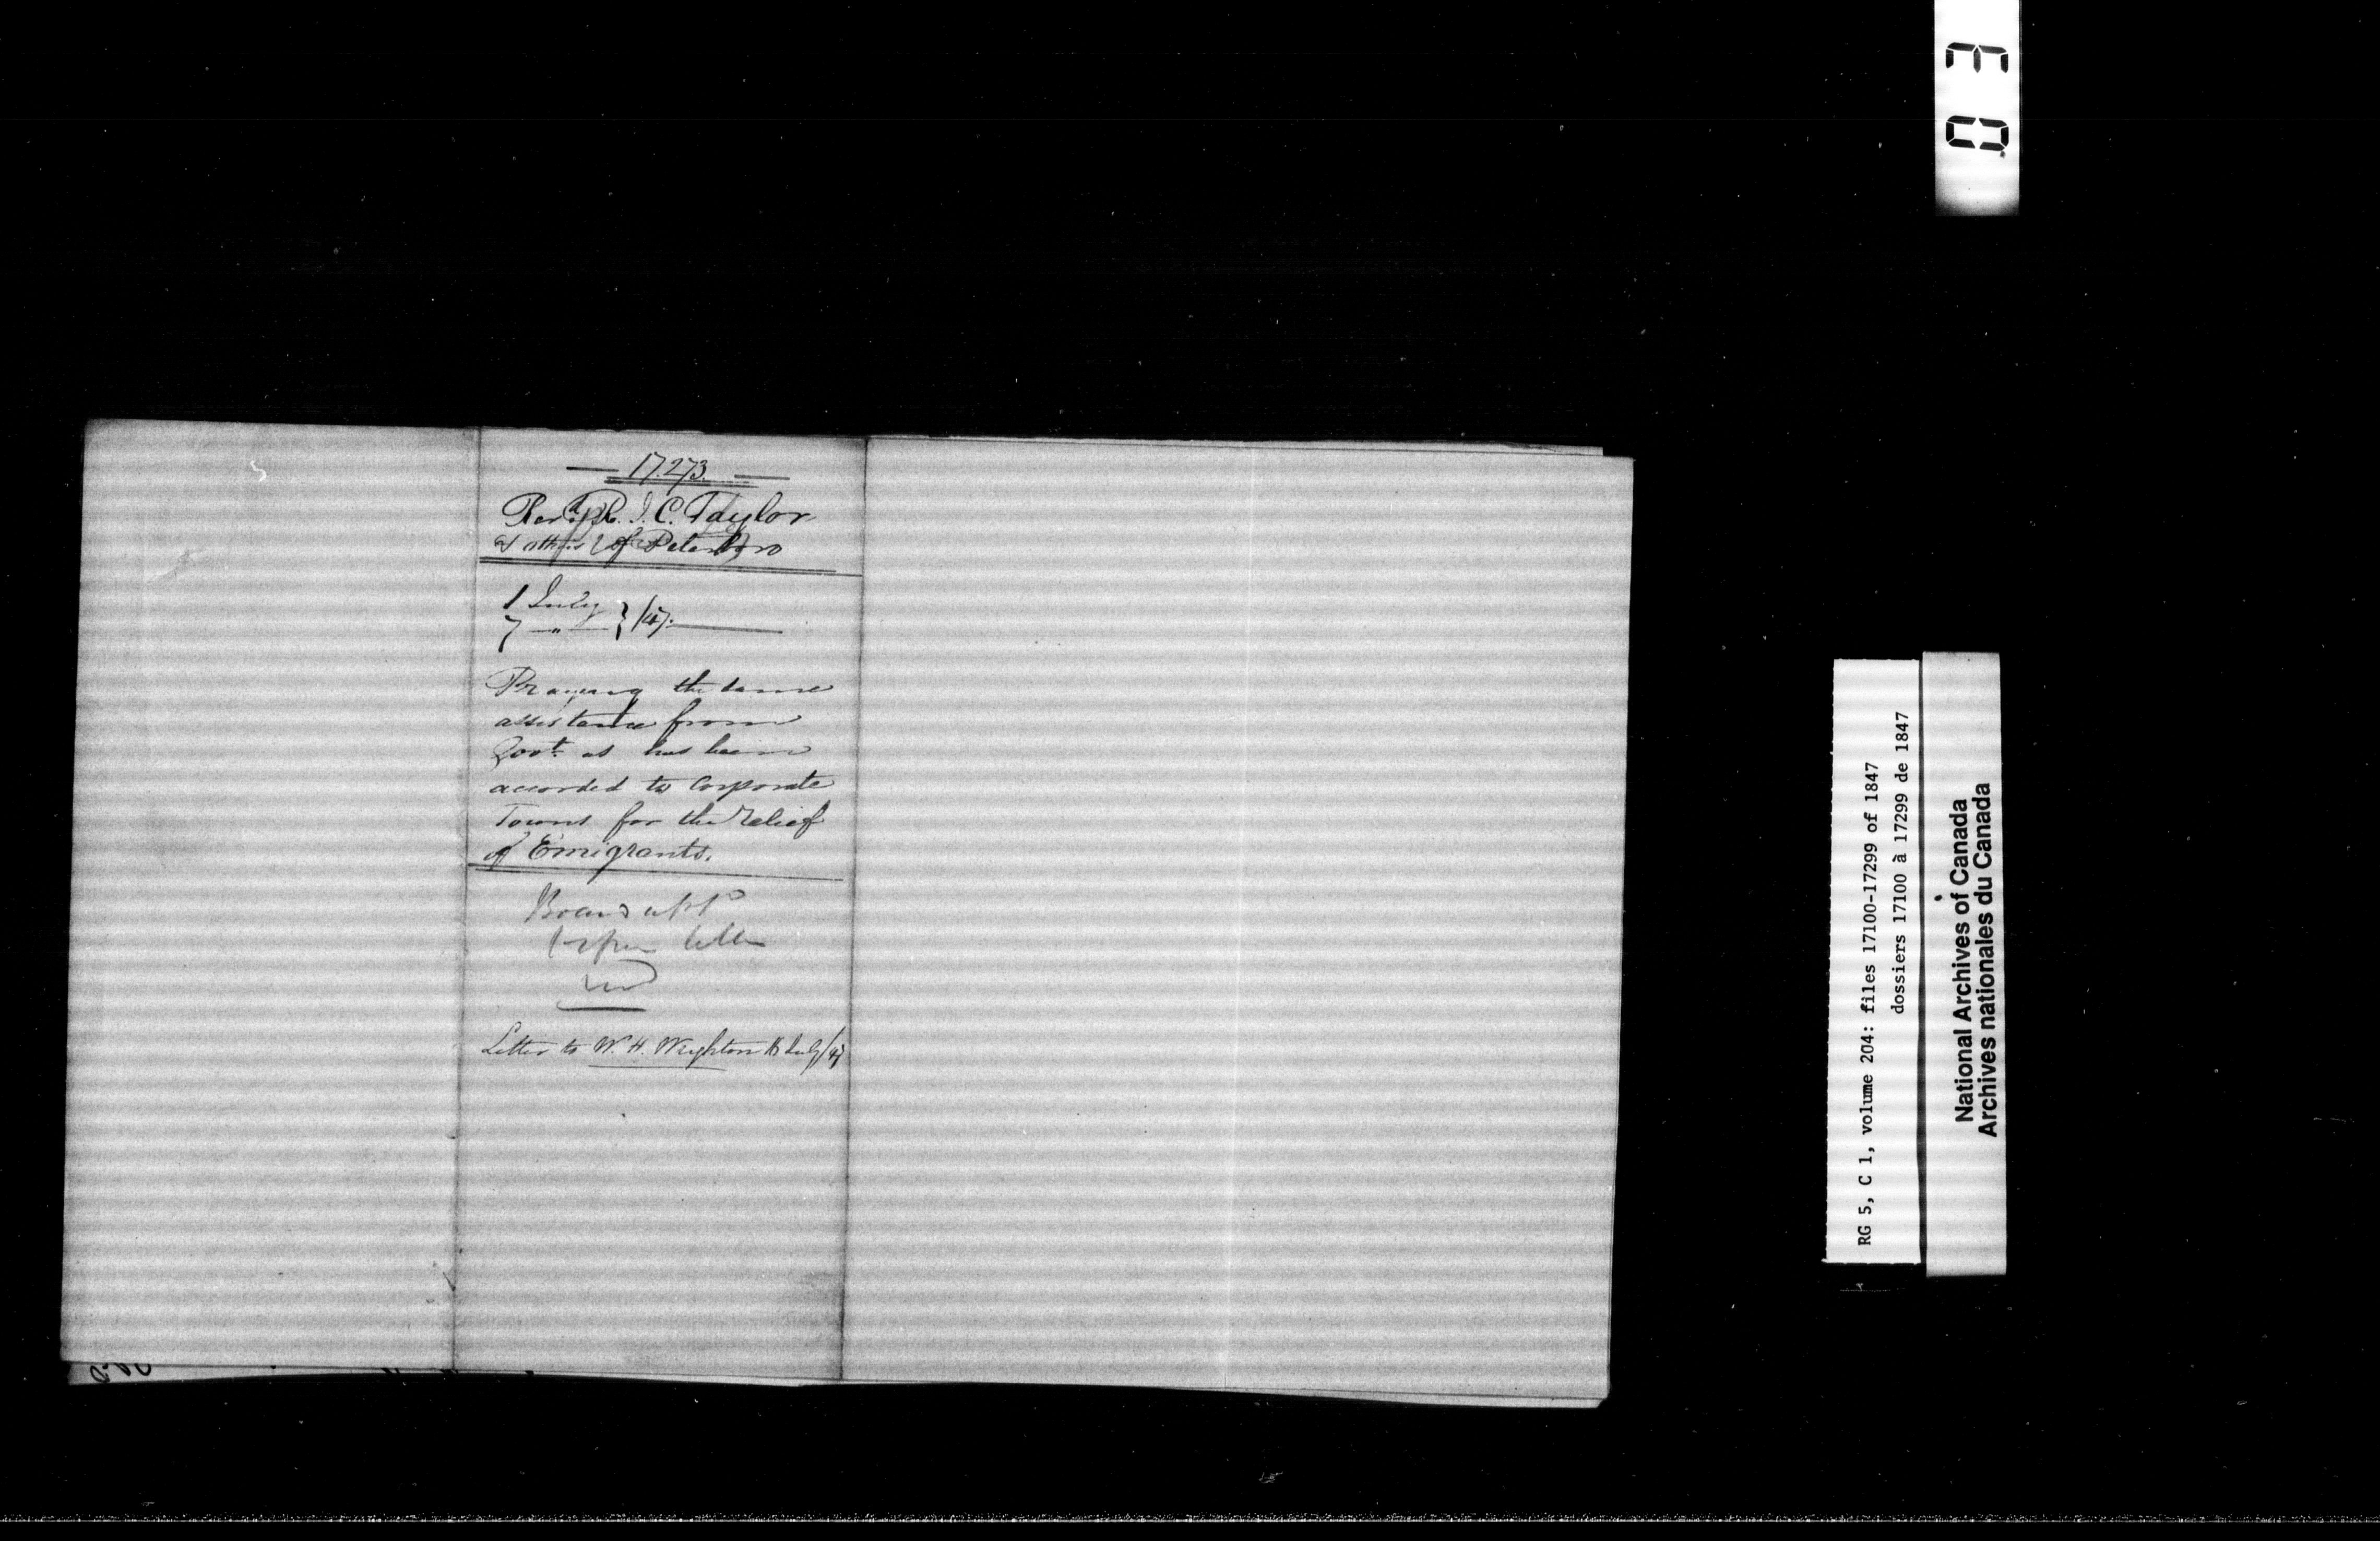 17.273.
Revd R. J. C. Taylor
& others of Peterboro
1 July
7 — " — } /47.
Praying the same
assistance from
Govt. as has been
accorded to Corporate
Towns for the relief
of Emigrants.
Board appd
letter
Letter to W. H. Wrighton 16 July/47
03
RG 5, C 1, volume 204: files 17100-17299 of 1847
dossiers 17100 à 17299 de 1847
National Archives of Canada
Archives nationales du Canada